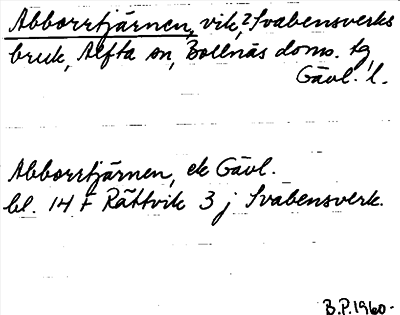 Abborrtjärnen, vik, ? Svabensverks
bruk, Alfta sn, Bollnäs doms. tg,
Gävl. l.
Abborrtjärnen, ek Gävl.
bl. 14 F Rättvik 3 j Svabensverk.
B.P. 1960-